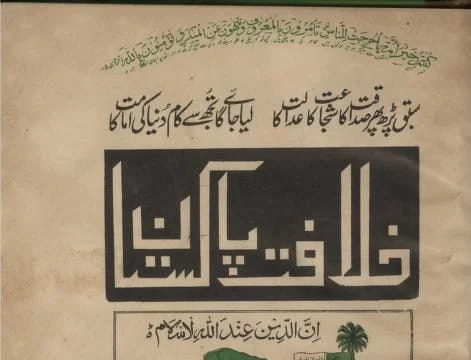 كُنْتُمْ خَيْرَ اُمَّةٍ اُخْرِجَتْ لِلنَّاسِ تَأْمُرُوْنَ بِالْمَعْرُوْفِ وَتَنْهَوْنَ عَنِ الْمُنْكَرِ وَتُؤْمِنُوْنَ بِاللهِ
سبق پڑھ پھر صداقت کا شجاعت کا عدالت کا لیا جائے گا تُجھ سے کام دُنیا کی امامت کا
خلافت پاکستان
اِنَّ الدِّيْنَ عِنْدَ اللهِ الْاِسْلَام